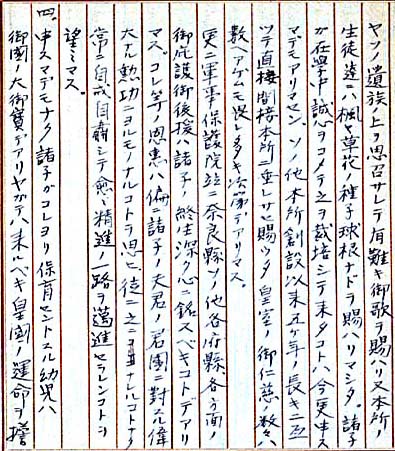 ヤソノ遺族ノ上ヲ思召サレテ有難キ御歌ヲ賜ハリ又本所ノ
生徒達ニハ楓ヤ草花ノ種子球根ナドヲ賜ハリマシタ。諸子
ガ在学中誠心ヲコメテ之ヲ栽培シテ来タコトハ今更申ス
マデモアリマセン。ソノ他本所創設以来五ケ年ノ長キニ亙
ツテ直接間接本所ニ垂レサセ賜ウタ皇室ノ御仁慈ノ数々ハ
数ヘアグルモ畏レ多キ次第デアリマス。
更ニ軍事保護院並ニ奈良縣ソノ他各府縣各方面ノ
御庇護御後援ハ諸子ノ終生深ク心ニ銘スベキコトデアリ
マス。コレ等ノ恩恵ハ偏ニ諸子ノ夫君ノ君國ニ對スル偉
大ナル勲功ニヨルモノナルコトヲ思ヒ、徒ニ之ニ甘ナルコトナク
常ニ自戒自粛シテ愈々精進ノ一路ヲ邁進セラレンコトヲ
望ミマス。
四、申スマデモナク諸子ガコレヨリ保育セントスル幼児ハ
御國ノ大御寶デアリヤガテハ来ルベキ皇國ノ運命ヲ擔